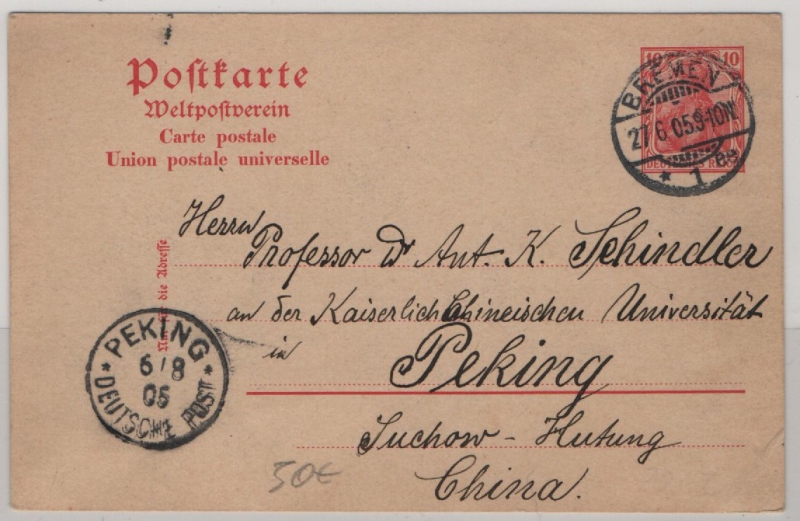 Postkarte
Weltpostverein
Carte postale
Union postale universelle
10
10
DEUTSCHES REICH
BREMEN
27.6.05.9-10N.
* 1 ee
Herrn
Professor Dr Ant. K. Schindler
an der Kaiserlich Chineischen Universität
in
Peking
Suchow-Hutung
China.
Nur für die Adresse
* PEKING *
6/8
05
DEUTSCHE POST
50€